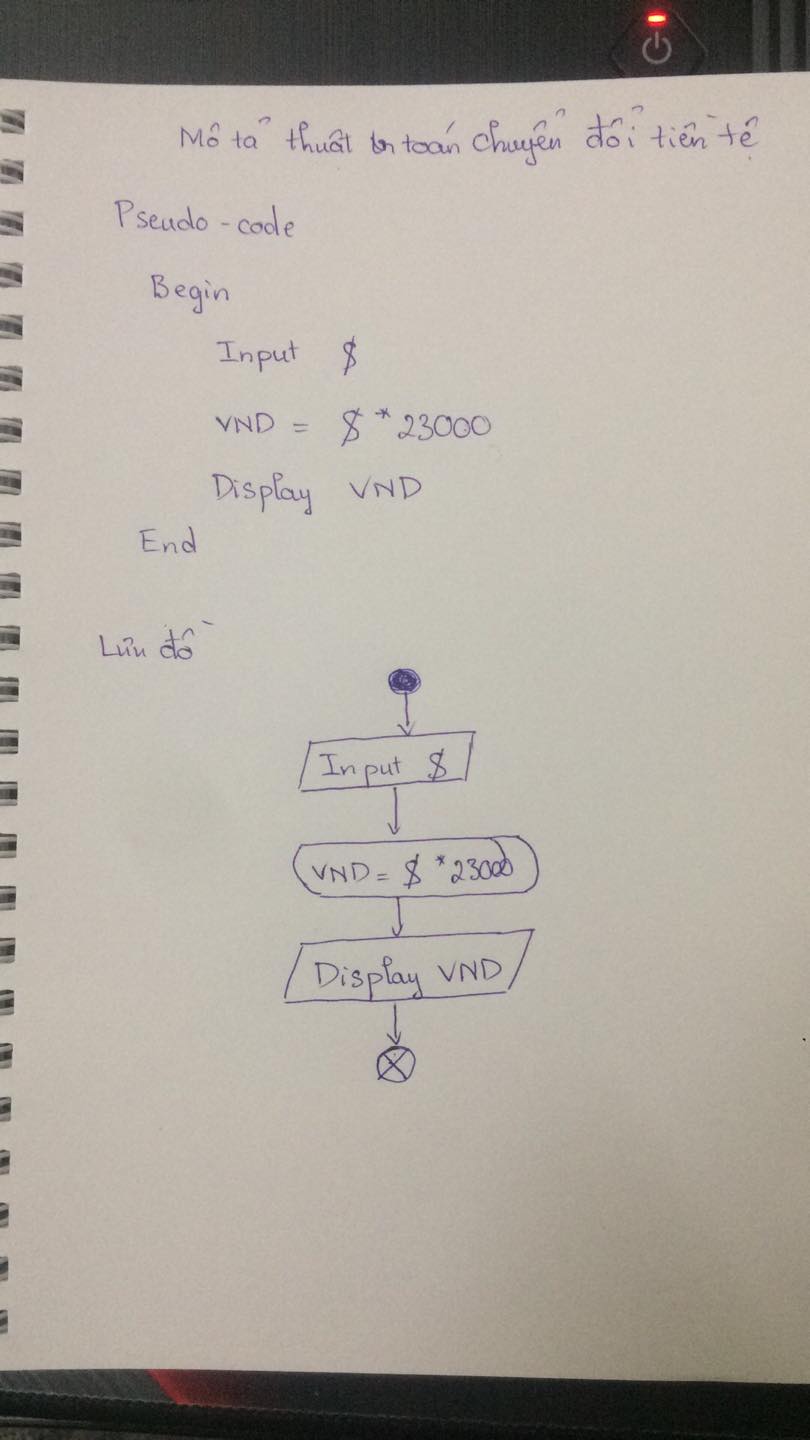 Mô tả thuật toán chuyển đổi tiền tệ
Pseudo-code
Begin
Input $
VND = $ * 23000
Display VND
End
Lưu đồ
Input $
VND = $ * 23000
Display VND